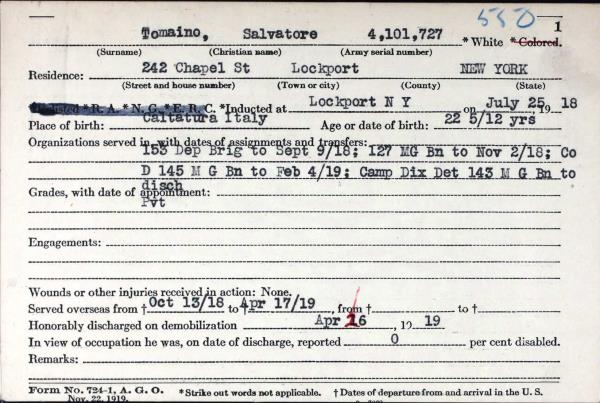 550 1
Tomaino, Salvatore 4,101,727 * White * Colored.
(Surname) (Christian name) (Army serial number)
Residence: 242 Chapel St Lockport NEW YORK
(Street and house number) (Town or city) (County) (State)
* R. A. * N. G. * E. R. C. *Inducted at Lockport N Y on July 25, 19 18
Place of birth: Caltatura Italy Age or date of birth: 22 5/12 yrs
Organizations served in, with dates of assignments and transfers:
153 Dep Brig to Sept 9/18; 127 MG Bn to Nov 2/18; Co
D 145 M G Bn to Feb 4/19; Camp Dix Det 143 M G Bn to
disch
Grades, with date of appointment:
Pvt
Engagements:
Wounds or other injuries received in action: None.
Served overseas from † Oct 13/18 to † Apr 17/19, from † to †
Honorably discharged on demobilization Apr 26, 19 19
In view of occupation he was, on date of discharge, reported 0 per cent disabled.
Remarks:
Form No. 724-1, A. G. O. *Strike out words not applicable. † Dates of departure from and arrival in the U. S.
Nov. 22, 1919.